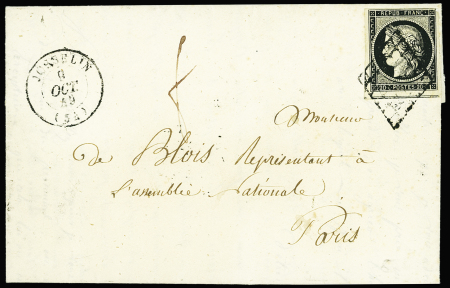 JOSSELIN
6
OCT.
49
(54)
REPUB. FRANC.
20 POSTES 20
Monsieur
de Blois Représentant à
L'assemblée Nationale
Paris